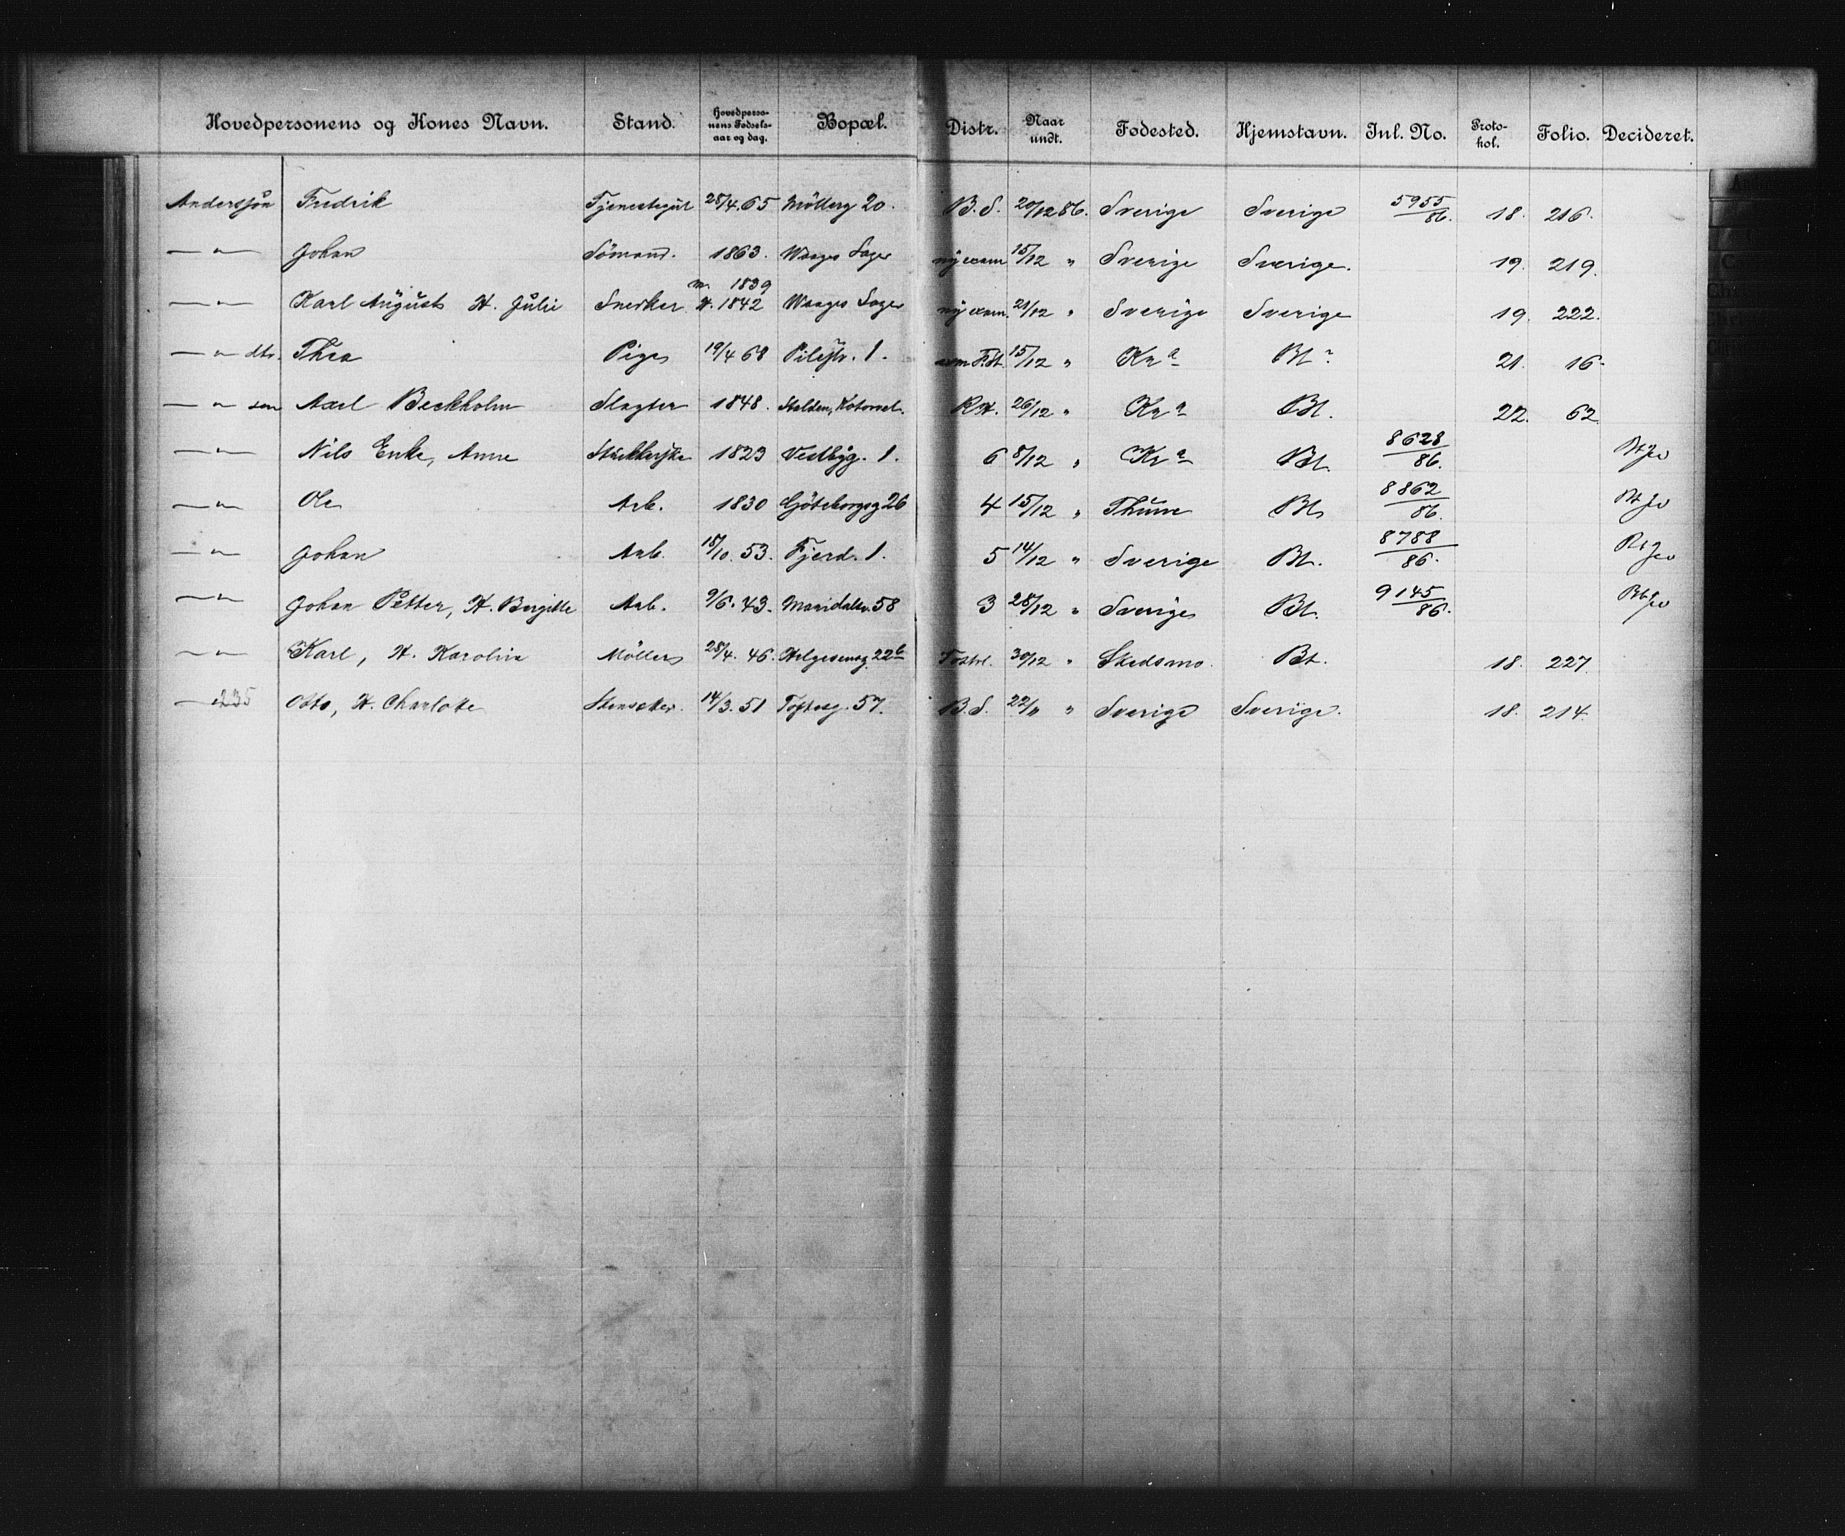 Hovedpersonens og Kones Navn. Stand. Hovedperso-nens Fødsels-aar og dag. Bopæl. Distr. Naar undt. Fødested. Hjemstavn. Inl. No. Proto-kol. Folio. Decideret.
Andersøn Fredrik Tjenestegut 28/4.65 Möllerg 20. B.S. 20/12 86. Sverige Sverige 5955/86. 18. 216.
— " — Johan Sömand. 1863. Waages Lager 15/12 " Sverige Sverige. 19. 219.
— " — Karl August H. Julie Snedker m. 1839 H. 1842 Waages Lager 21/12 " Sverige Sverige 19. 222.
— " dtr. Thea Pige 19/4 68 Pilestr. 1. 15/12 " Kra Bt 21. 16.
— " søn Axel Beckholm Slagter 1848. R.H. 26/12 " Kra Bt. 22. 62
— " — Nils Enke, Anne 1823 Vestbyg. 1. 6 8/12 " Kra Bt. 8628/86.
— " — Ole Arb. 1830 Göteborgsg 26 4 15/12 " Bt 8862/86.
— " — Johan Arb. 18/10. 53. Fjerd. 1. 5 14/12 " Sverige Bt. 8788/86.
— " — Johan Petter, H. Bergitte Arb. 9/6. 43. Maridalsv. 58 3 28/12 " Sverige Bt. 9145/86.
— " — Karl, H. Karolina Möller 28/4. 46. Helgesensg. 22b 30/12 " Skedsmo. Bt. 18. 227.
235 Otto, H. Charlotte 14/3. 51 Toftesg. 57. B.S. 22/11 " Sverige Sverige. 18. 214.